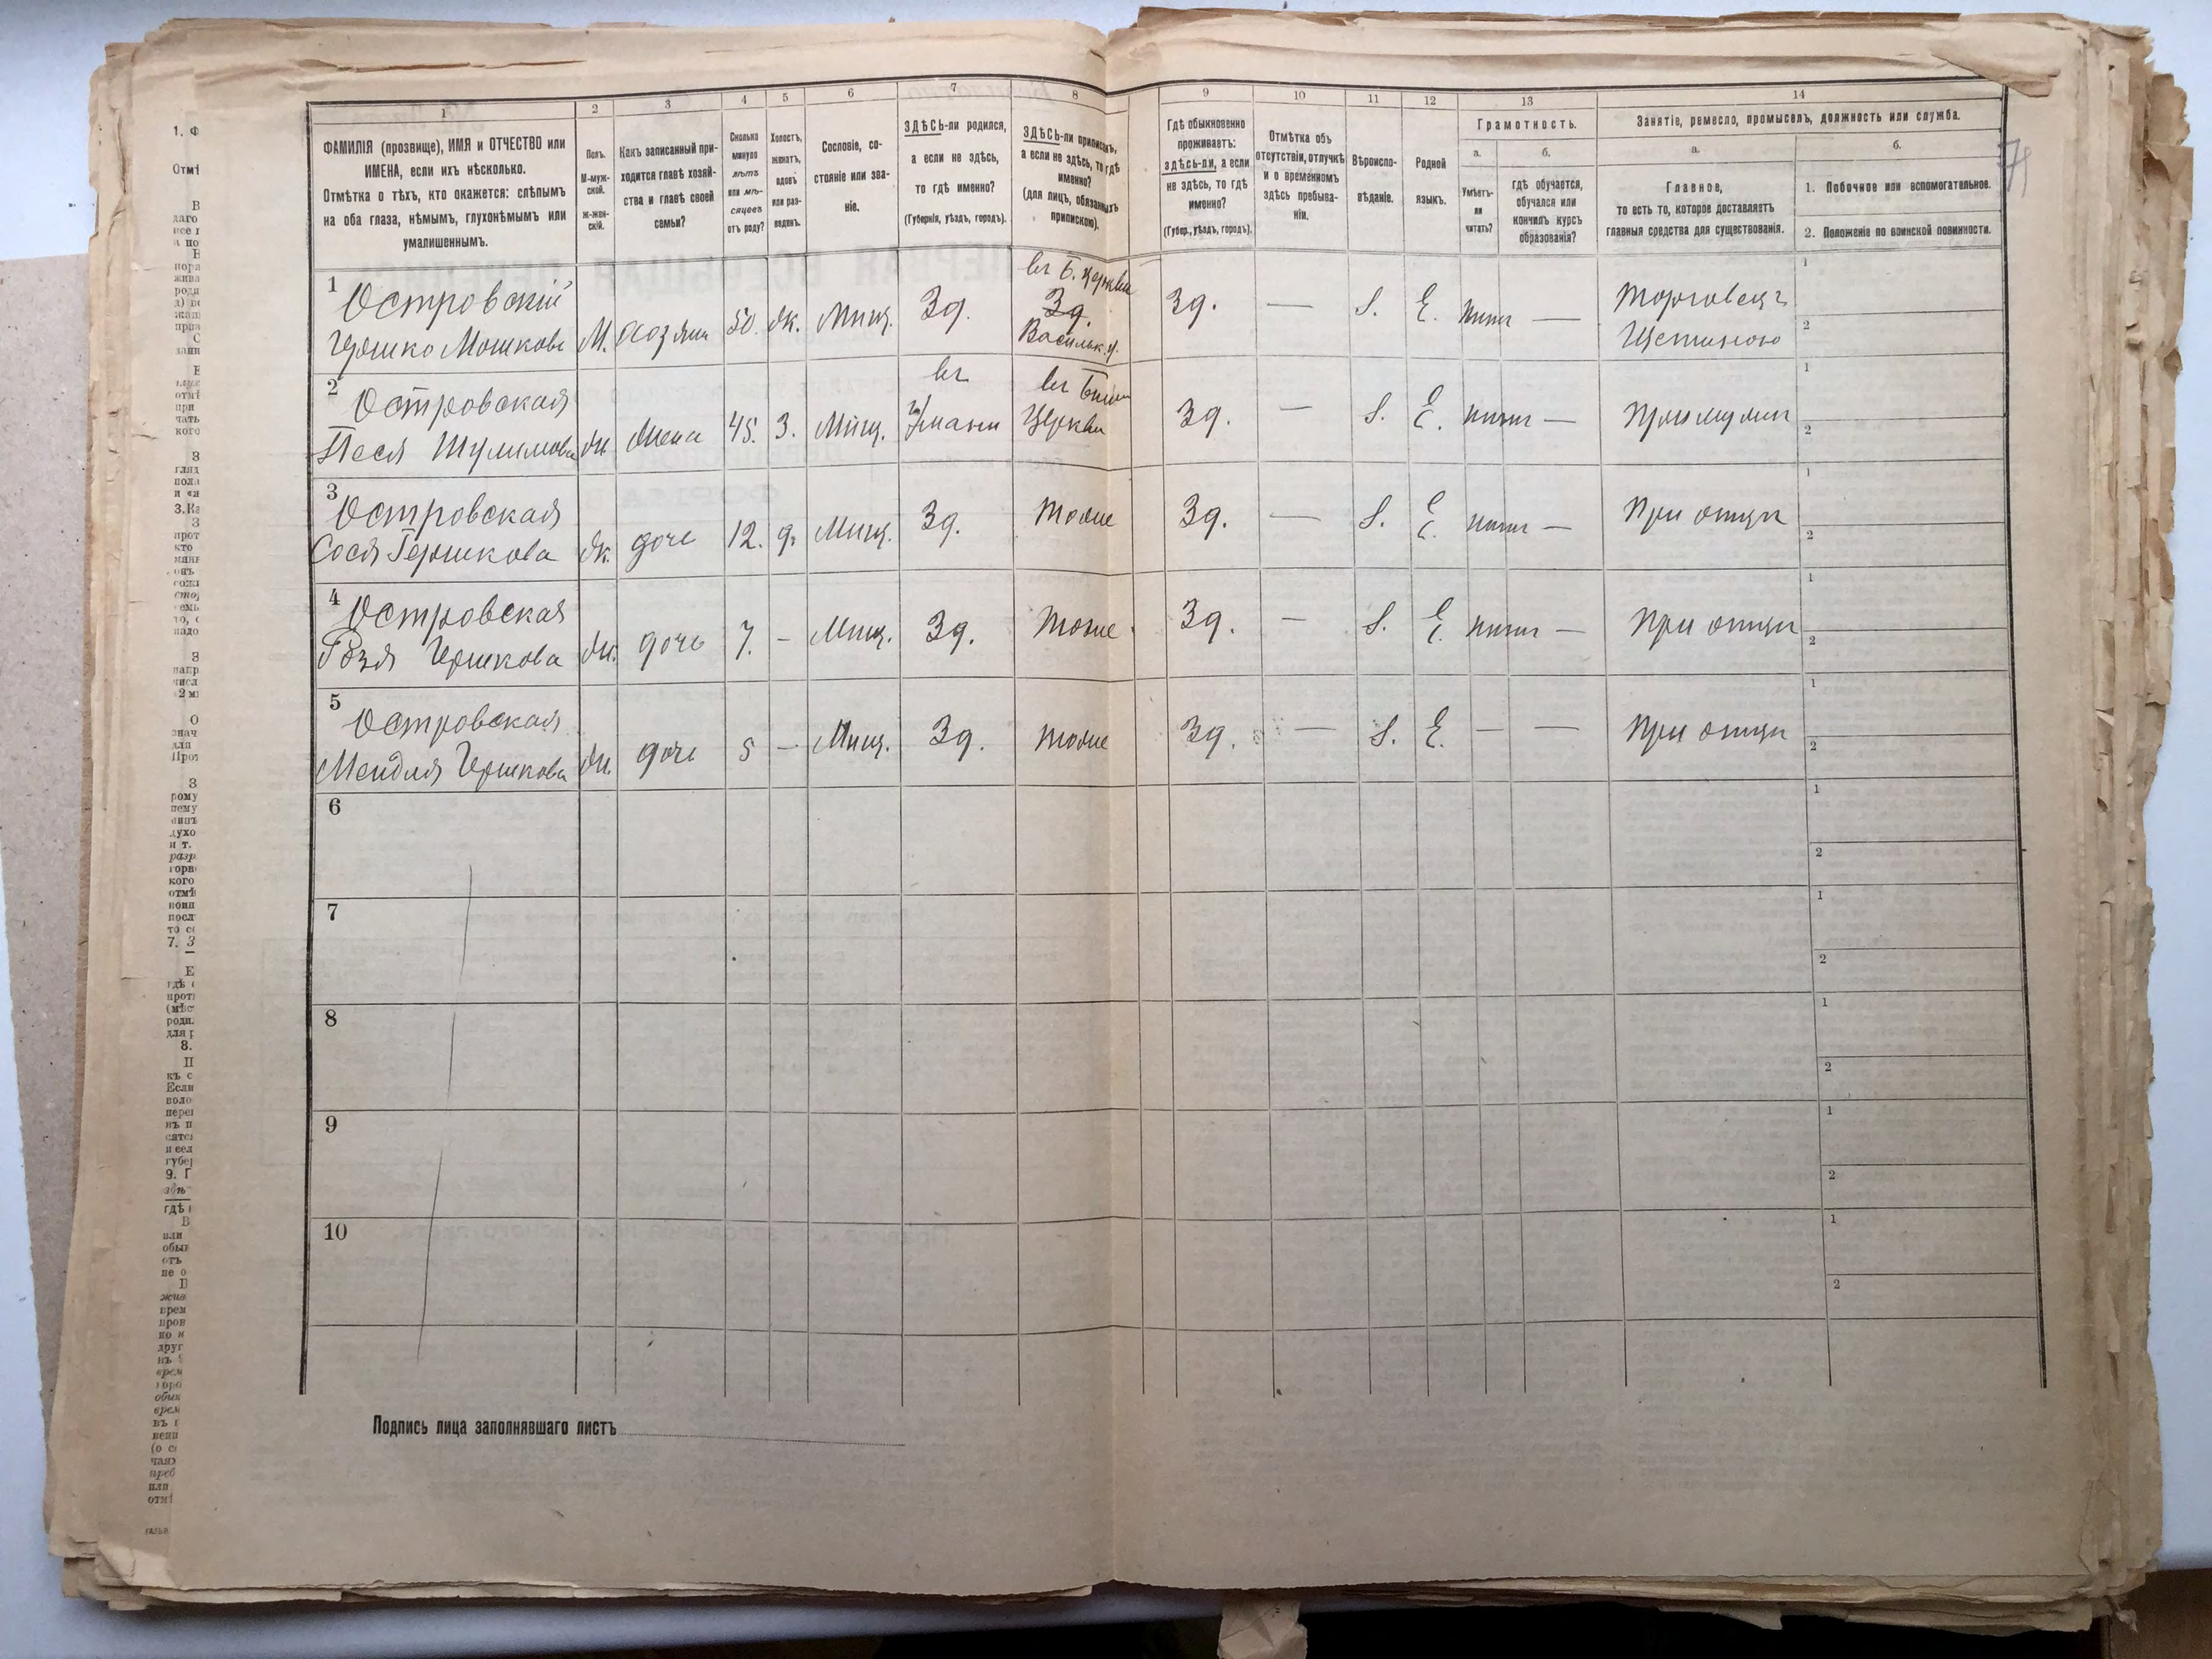 1 2 3 4 5 6 7 8 9 10 11 12 13 14
ФАМИЛІЯ (прозвище), ИМЯ и ОТЧЕСТВО или
ИМЕНА, если ихъ нѣсколько.
Отмѣтка о тѣхъ, кто окажется: слѣпымъ
на оба глаза, нѣмымъ, глухонѣмымъ или
умалишеннымъ.
Полъ.
М-муж-
ской.
Ж-жен-
скій.
Какъ записанный при-
ходится главѣ хозяй-
ства и главѣ своей
семьи?
Сколько
минуло
лѣтъ
или мѣ-
сяцевъ
отъ роду?
Холостъ,
женатъ,
вдовъ
или раз-
веденъ.
Сословіе, со-
стояніе или зва-
ніе.
ЗДѢСЬ-ли родился,
а если не здѣсь,
то гдѣ именно?
(Губернія, уѣздъ, городъ).
ЗДѢСЬ-ли приписанъ,
а если не здѣсь, то гдѣ
именно?
(для лицъ, обязанныхъ
припискою).
Гдѣ обыкновенно
проживаетъ:
здѣсь-ли, а если
не здѣсь, то гдѣ
именно?
(Губер., уѣздъ, городъ).
Отмѣтка объ
отсутствіи, отлучкѣ
и о временномъ
здѣсь пребыва-
ніи.
Вѣроиспо-
вѣданіе.
Родной
языкъ.
Грамотность.
а.
Умѣетъ-
ли
читать?
б.
гдѣ обучается,
обучался или
кончилъ курсъ
образованія?
Занятіе, ремесло, промыселъ, должность или служба.
а.
Главное,
то есть то, которое доставляетъ
главныя средства для существованія.
б.
1. Побочное или вспомогательное.
2. Положеніе по воинской повинности.
1 Островскій
Гершко Мошковъ М. хозяин 50. ж. Мищ. Зд. въ Б. Церкви Зд. Васильк. у. Зд. — Е. — Торговецъ Щетиною 1 2
2 Островская
Песя Шулимова Ж. Жена 45. З. Мищ. въ г. Умани въ Бѣлой Церкви Зд. — Е. — При мужѣ 1 2
3 Островская
Сося Гершкова Ж. дочь 12. д. Мищ. Зд. Тоже Зд. — Е. — При отцѣ 1 2
4 Островская
Розя Гершкова Ж. дочь 7. — Мищ. Зд. Тоже Зд. — Е. — При отцѣ 1 2
5 Островская
Мендля Гершкова Ж. дочь 5 — Мищ. Зд. Тоже Зд. — Е. — — При отцѣ 1 2
6 1 2
7 1 2
8 1 2
9 1 2
10 1 2
Подпись лица заполнявшаго листъ